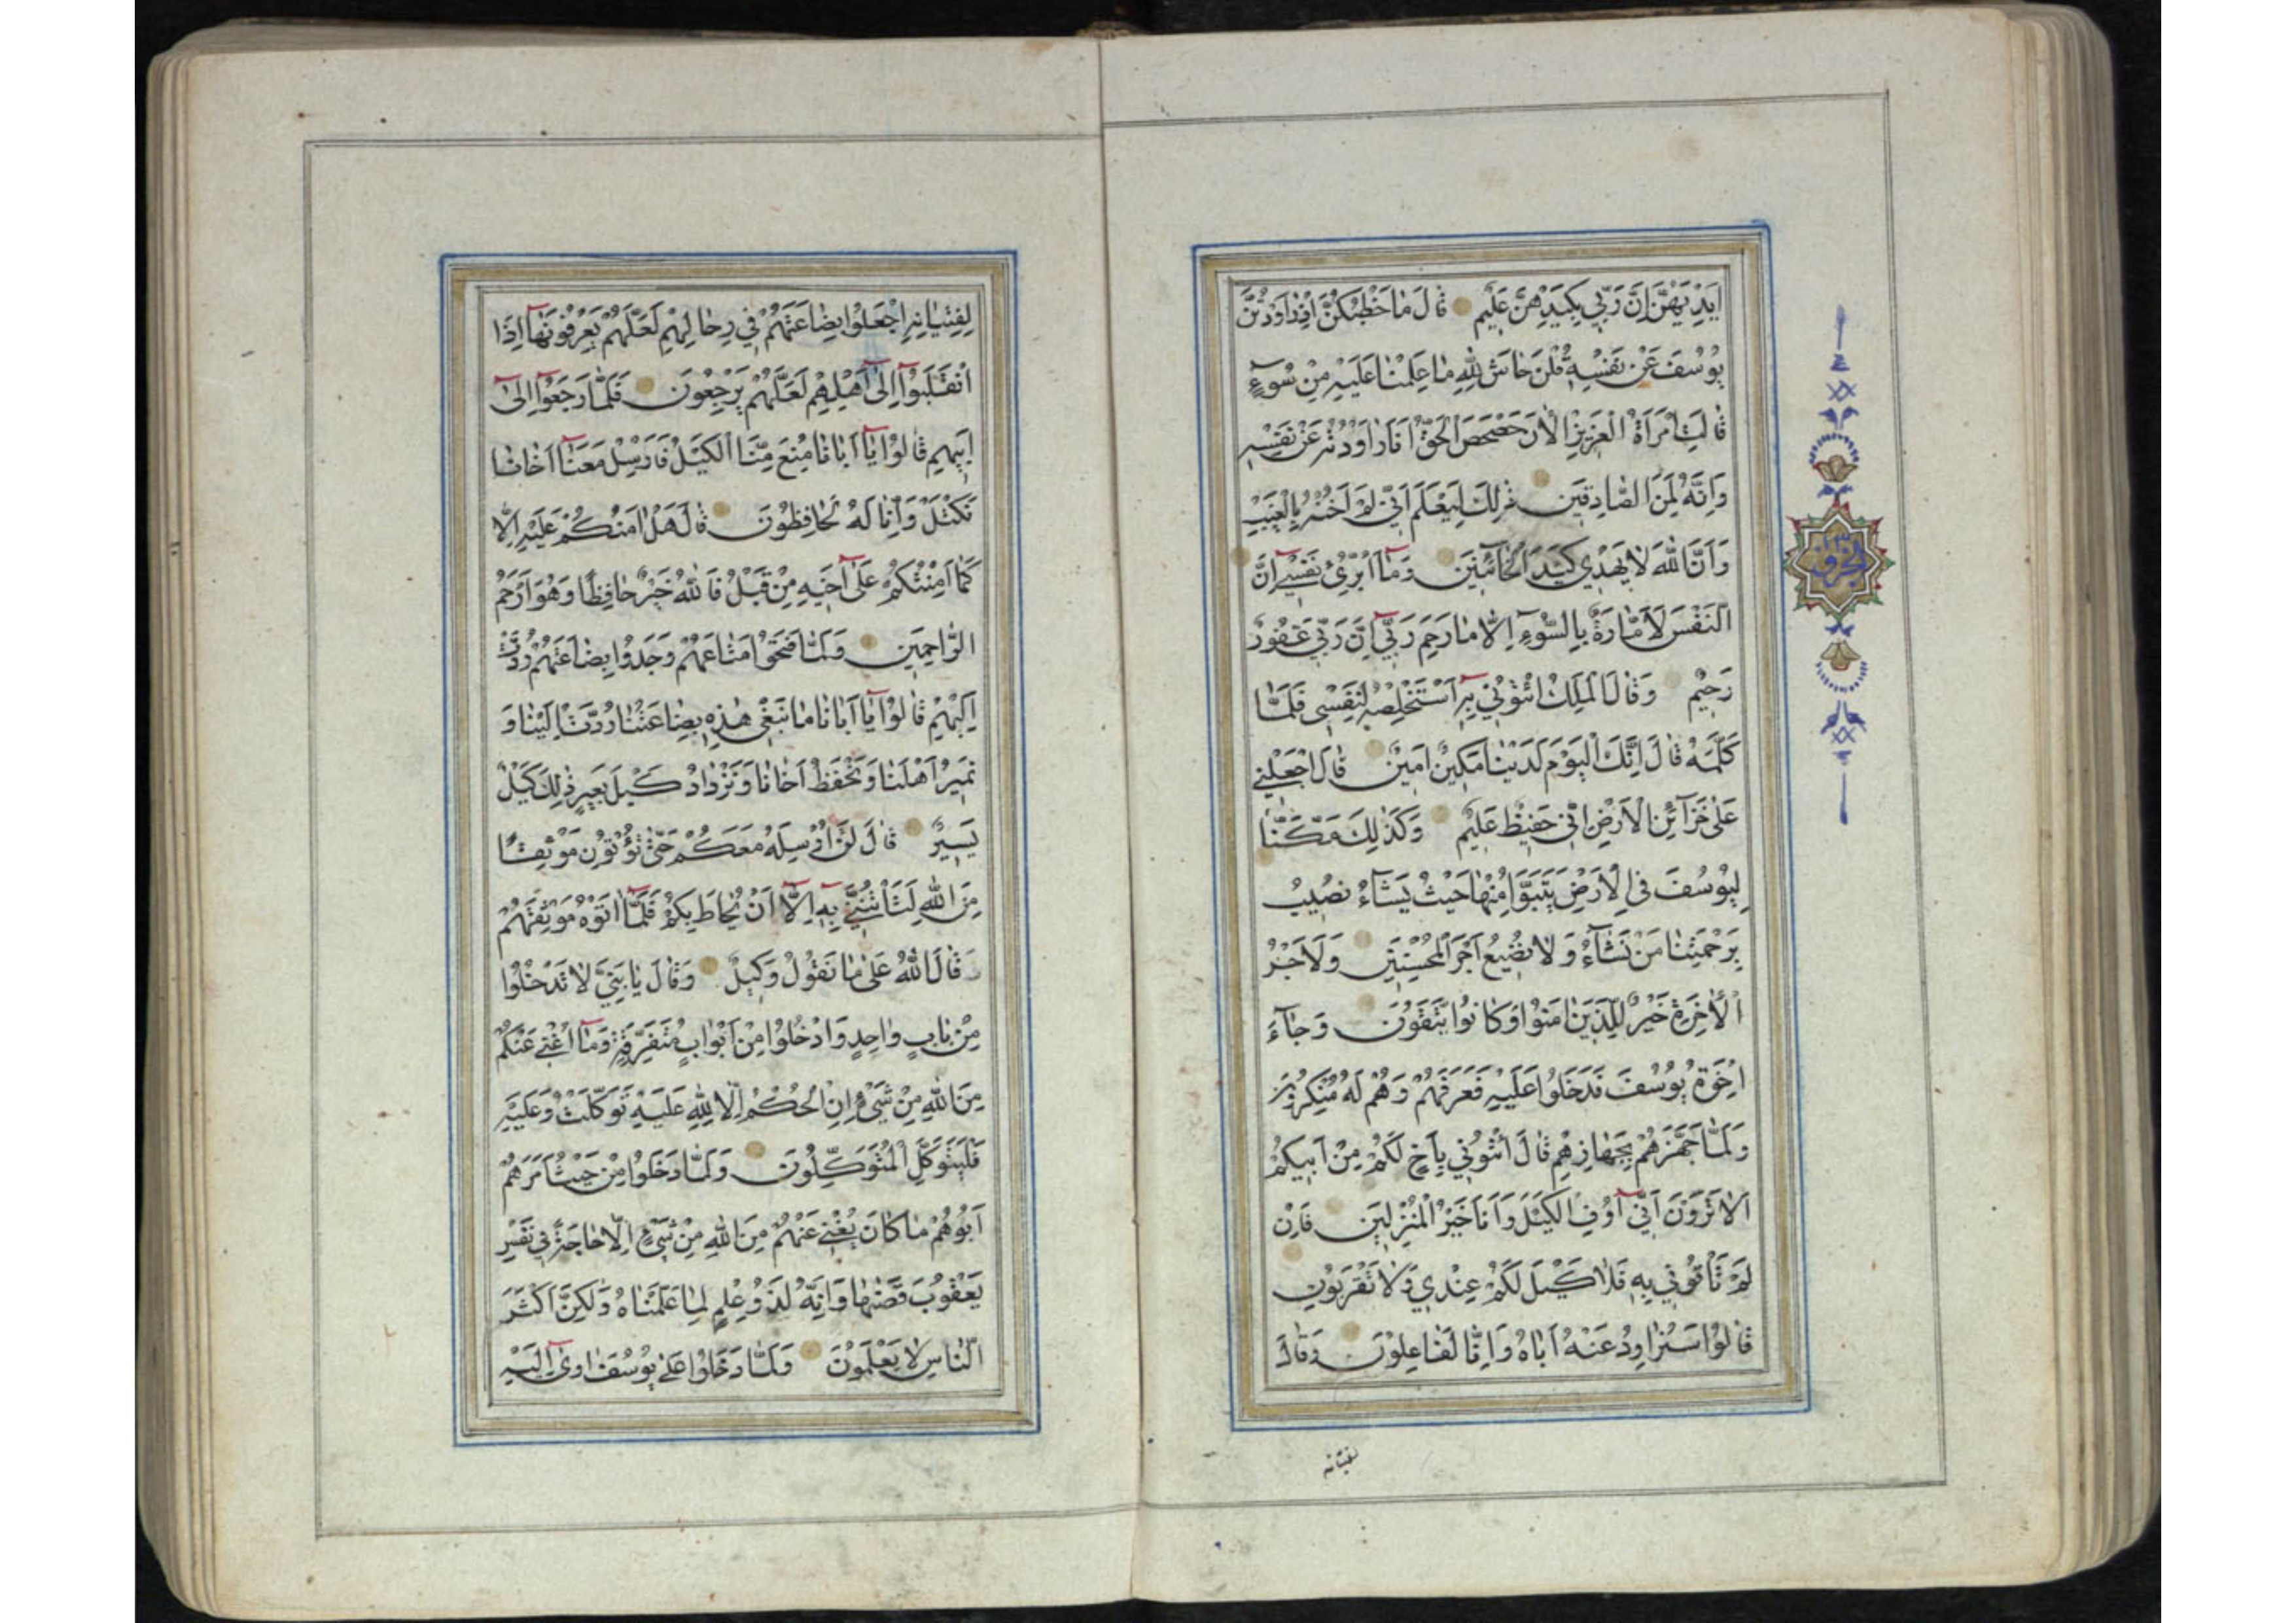 اَيْدِيَهُنَّ اِنَّ رَبّي بِكَيْدِهِنَّ عَليمٌ قالَ مٰا خَطْبُكُنَّ اِذْ رٰاوَدْتُنَّ
يُوسُفَ عَنْ نَفْسِهِ قُلْنَ حٰاشَ لِلّٰهِ مٰا عَلِمْنٰا عَلَيْهِ مِنْ سُوۤءٍ
قٰالَتِ امْرَاَةُ الْعَزيزِ الْاٰنَ حَصْحَصَ الْحَقُّ اَنَا رٰاوَدْتُهُ عَنْ نَفْسِهِ
وَاِنَّهُ لَمِنَ الصّٰادِقينَ ذٰلِكَ لِيَعْلَمَ اَنّي لَمْ اَخُنْهُ بِالْغَيْبِ
وَاَنَّ اللّٰهَ لاٰ يَهْدي كَيْدَ الْخٰائِنينَ وَمٰاۤ اُبَرِّئُ نَفْسيۤ اِنَّ
النَّفْسَ لَاَمّٰارَةٌ بِالسُّوۤءِ اِلّٰا مٰا رَحِمَ رَبّيۤ اِنَّ رَبّي غَفُورٌ
رَحيمٌ وَقٰالَ الْمَلِكُ ائْتُوني بِهِۤ اَسْتَخْلِصْهُ لِنَفْسي فَلَمّٰا
كَلَّمَهُ قٰالَ اِنَّكَ الْيَوْمَ لَدَيْنٰا مَكينٌ اَمينٌ قٰالَ اجْعَلْني
عَلىٰ خَزٰاۤئِنِ الْاَرْضِ اِنّي حَفيظٌ عَليمٌ وَكَذٰلِكَ مَكَّنّٰا
لِيُوسُفَ فِي الْاَرْضِ يَتَبَوَّاُ مِنْهٰا حَيْثُ يَشٰاۤءُ نُصيبُ
بِرَحْمَتِنٰا مَنْ نَشٰاۤءُ وَلاٰ نُضيعُ اَجْرَ الْمُحْسِنينَ وَلَاَجْرُ
الْاٰخِرَةِ خَيْرٌ لِلَّذينَ اٰمَنُوا وَكٰانُوا يَتَّقُونَ وَجٰاۤءَ
اِخْوَةُ يُوسُفَ فَدَخَلُوا عَلَيْهِ فَعَرَفَهُمْ وَهُمْ لَهُ مُنْكِرُونَ
وَلَمّٰا جَهَّزَهُمْ بِجَهٰازِهِمْ قٰالَ ائْتُوني بِاَخٍ لَكُمْ مِنْ اَبيكُمْ
اَلاٰ تَرَوْنَ اَنّيۤ اُوفِي الْكَيْلَ وَاَنَا خَيْرُ الْمُنْزِلينَ فَاِنْ
لَمْ تَأْتُوني بِهِ فَلاٰ كَيْلَ لَكُمْ عِنْدي وَلاٰ تَقْرَبُونِ
قٰالُوا سَنُرٰاوِدُ عَنْهُ اَبٰاهُ وَاِنّٰا لَفٰاعِلُونَ وَقٰالَ
لفتيانه
لِفِتْيٰانِهِ اجْعَلُوا بِضٰاعَتَهُمْ في رِحٰالِهِمْ لَعَلَّهُمْ يَعْرِفُونَهٰاۤ اِذَا
انْقَلَبُوۤا اِلىٰۤ اَهْلِهِمْ لَعَلَّهُمْ يَرْجِعُونَ فَلَمّٰا رَجَعُوۤا اِلىٰۤ
اَبيهِمْ قٰالُوا يٰاۤ اَبٰانٰا مُنِعَ مِنَّا الْكَيْلُ فَاَرْسِلْ مَعَنٰاۤ اَخٰانٰا
نَكْتَلْ وَاِنّٰا لَهُ لَحٰافِظُونَ قٰالَ هَلْ اٰمَنُكُمْ عَلَيْهِ اِلّٰا
كَمٰاۤ اَمِنْتُكُمْ عَلىٰۤ اَخيهِ مِنْ قَبْلُ فَاللّٰهُ خَيْرٌ حٰافِظًا وَهُوَ اَرْحَمُ
الرّٰاحِمينَ وَلَمّٰا فَتَحُوا مَتٰاعَهُمْ وَجَدُوا بِضٰاعَتَهُمْ رُدَّتْ
اِلَيْهِمْ قٰالُوا يٰاۤ اَبٰانٰا مٰا نَبْغي هٰذِهِ بِضٰاعَتُنٰا رُدَّتْ اِلَيْنٰا وَ
نَميرُ اَهْلَنٰا وَنَحْفَظُ اَخٰانٰا وَنَزْدٰادُ كَيْلَ بَعيرٍ ذٰلِكَ كَيْلٌ
يَسيرٌ قٰالَ لَنْ اُرْسِلَهُ مَعَكُمْ حَتّٰى تُؤْتُونِ مَوْثِقًا
مِنَ اللّٰهِ لَتَأْتُنَّني بِهِۤ اِلّٰاۤ اَنْ يُحٰاطَ بِكُمْ فَلَمّٰاۤ اٰتَوْهُ مَوْثِقَهُمْ
قٰالَ اللّٰهُ عَلىٰ مٰا نَقُولُ وَكيلٌ وَقٰالَ يٰا بَنِيَّ لاٰ تَدْخُلُوا
مِنْ بٰابٍ وٰاحِدٍ وَادْخُلُوا مِنْ اَبْوٰابٍ مُتَفَرِّقَةٍ وَمٰاۤ اُغْني عَنْكُمْ
مِنَ اللّٰهِ مِنْ شَيْءٍ اِنِ الْحُكْمُ اِلّٰا لِلّٰهِ عَلَيْهِ تَوَكَّلْتُ وَعَلَيْهِ
فَلْيَتَوَكَّلِ الْمُتَوَكِّلُونَ وَلَمّٰا دَخَلُوا مِنْ حَيْثُ اَمَرَهُمْ
اَبُوهُمْ مٰا كٰانَ يُغْني عَنْهُمْ مِنَ اللّٰهِ مِنْ شَيْءٍ اِلّٰا حٰاجَةً في نَفْسِ
يَعْقُوبَ قَضٰيهٰا وَاِنَّهُ لَذُو عِلْمٍ لِمٰا عَلَّمْنٰاهُ وَلٰكِنَّ اَكْثَرَ
النّٰاسِ لاٰ يَعْلَمُونَ وَلَمّٰا دَخَلُوا عَلىٰ يُوسُفَ اٰوىٰۤ اِلَيْهِ